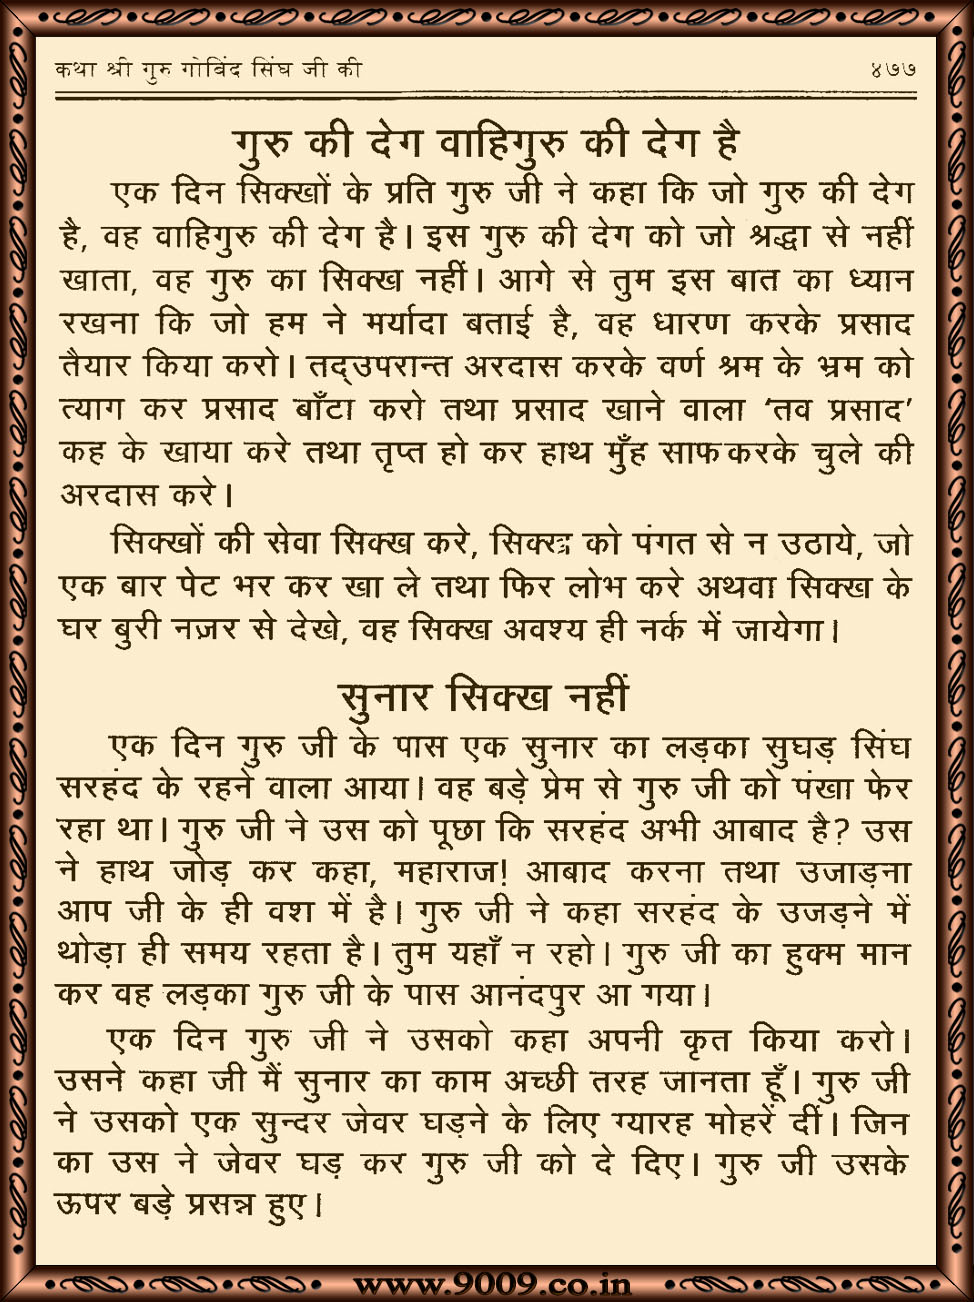 कथा श्री गुरु गोबिंद सिंघ जी की ४७७
गुरु की देग वाहिगुरु की देग है
एक दिन सिक्खों के प्रति गुरु जी ने कहा कि जो गुरु की देग
है, वह वाहिगुरु की देग है। इस गुरु की देग को जो श्रद्धा से नहीं
खाता, वह गुरु का सिक्ख नहीं। आगे से तुम इस बात का ध्यान
रखना कि जो हम ने मर्यादा बताई है, वह धारण करके प्रसाद
तैयार किया करो। तद्उपरान्त अरदास करके वर्ण श्रम के भ्रम को
त्याग कर प्रसाद बाँटा करो तथा प्रसाद खाने वाला ‘तव प्रसाद’
कह के खाया करे तथा तृप्त हो कर हाथ मुँह साफ करके चुले की
अरदास करे।
सिक्खों की सेवा सिक्ख करे, सिक्ख को पंगत से न उठाये, जो
एक बार पेट भर कर खा ले तथा फिर लोभ करे अथवा सिक्ख के
घर बुरी नज़र से देखे, वह सिक्ख अवश्य ही नर्क में जायेगा।
सुनार सिक्ख नहीं
एक दिन गुरु जी के पास एक सुनार का लड़का सुघड़ सिंघ
सरहंद के रहने वाला आया। वह बड़े प्रेम से गुरु जी को पंखा फेर
रहा था। गुरु जी ने उस को पूछा कि सरहंद अभी आबाद है? उस
ने हाथ जोड़ कर कहा, महाराज! आबाद करना तथा उजाड़ना
आप जी के ही वश में है। गुरु जी ने कहा सरहंद के उजड़ने में
थोड़ा ही समय रहता है। तुम यहाँ न रहो। गुरु जी का हुक्म मान
कर वह लड़का गुरु जी के पास आनंदपुर आ गया।
एक दिन गुरु जी ने उसको कहा अपनी कृत किया करो।
उसने कहा जी मैं सुनार का काम अच्छी तरह जानता हूँ। गुरु जी
ने उसको एक सुन्दर जेवर घड़ने के लिए ग्यारह मोहरें दीं। जिन
का उस ने जेवर घड़ कर गुरु जी को दे दिए। गुरु जी उसके
ऊपर बड़े प्रसन्न हुए।
www.9009.co.in